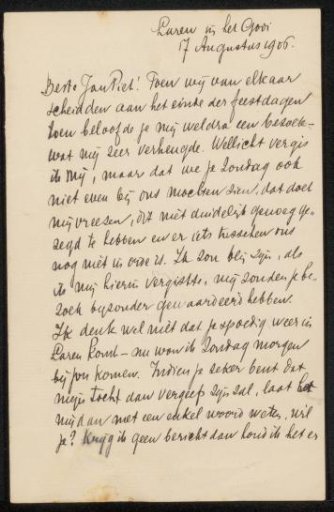 Laren in het Gooi
17 Augustus 1906.
Beste Jan Piet! Toen wij van elkaar
scheidden aan het einde der feestdagen
toen beloofde je mij weldra een bezoek –
wat mij zeer verheugde. Wellicht vergis
ik mij, maar dat we je Zondag ook
niet even bij ons mochten zien, dat doet
mij vreezen, dit niet duidelijk genoeg ge-
zegd te hebben en er iets tusschen ons
nog niet in orde is. Ik zou blij zijn, als
ik mij hierin vergiste, wij zouden je be-
zoek bijzonder gewaardeerd hebben.
Ik denk wel niet dat je spoedig weer in
Laren komt – nu wou ik Zondag morgen
bij jou komen. Indien je zeker bent dat
mijn tocht dan vergeefs zijn zal, laat het
mij dan met een enkel woord weten, wil
je? Krijg ik geen bericht dan houd ik het er